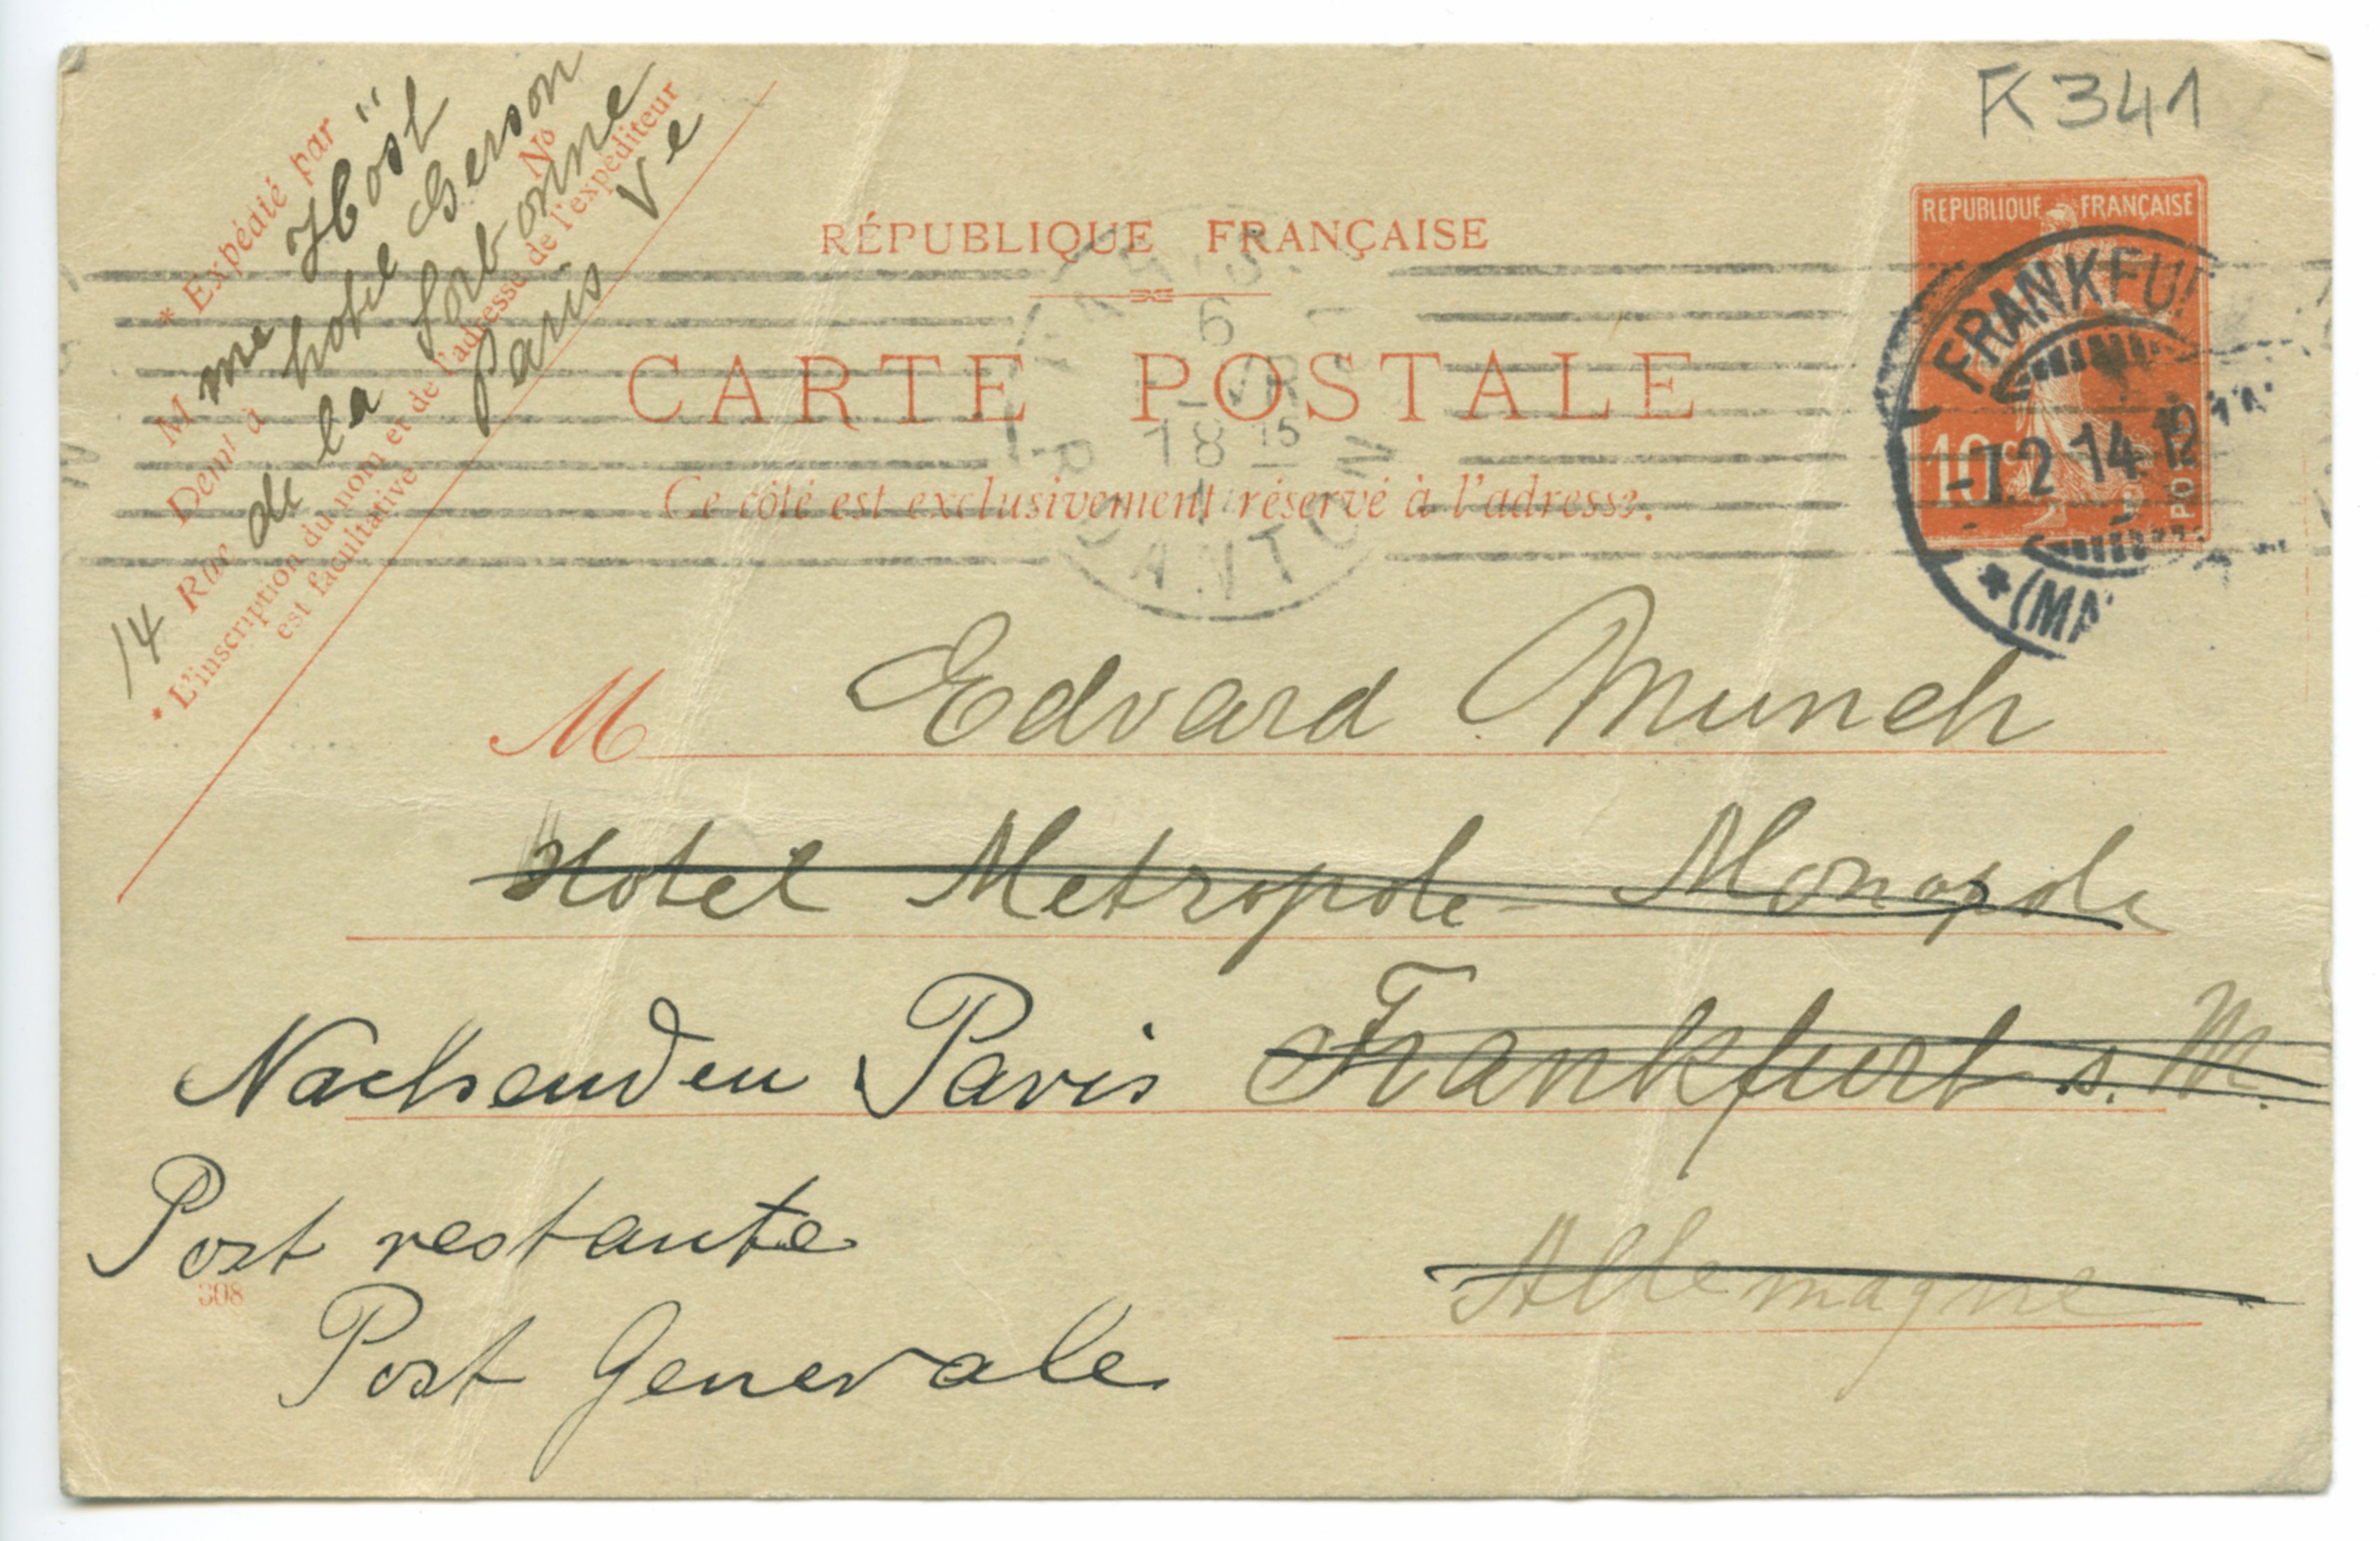 K 341
* Expédié par
Mme Höst
Demt à hotel Gerson No
14 Rue de la Sorbonne
Paris Ve
* L'inscription du nom et de l'adresse de l'expéditeur
est facultative
RÉPUBLIQUE FRANÇAISE
CARTE POSTALE
Ce côté est exclusivement réservé à l'adresse.
REPUBLIQUE FRANÇAISE
10c
PARIS
6
18 15
DANTON
FRANKFU
-7.2 14 12
* (MA
M Edvard Munch
Hotel Metropole-Monopole
Nachsenden Paris Frankfurt s. M.
Post restante
Allemagne
308
Post Generale